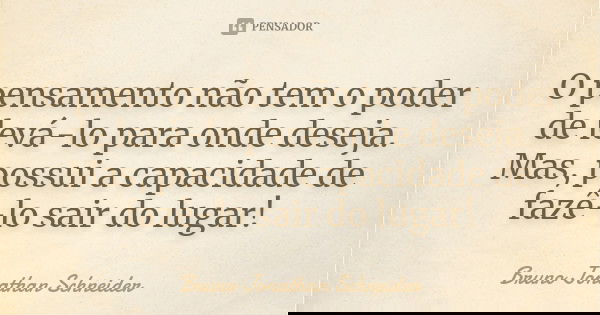 PENSADOR
O pensamento não tem o poder
de levá-lo para onde deseja.
Mas, possui a capacidade de
fazê-lo sair do lugar!
Bruno Jonathan Schneider